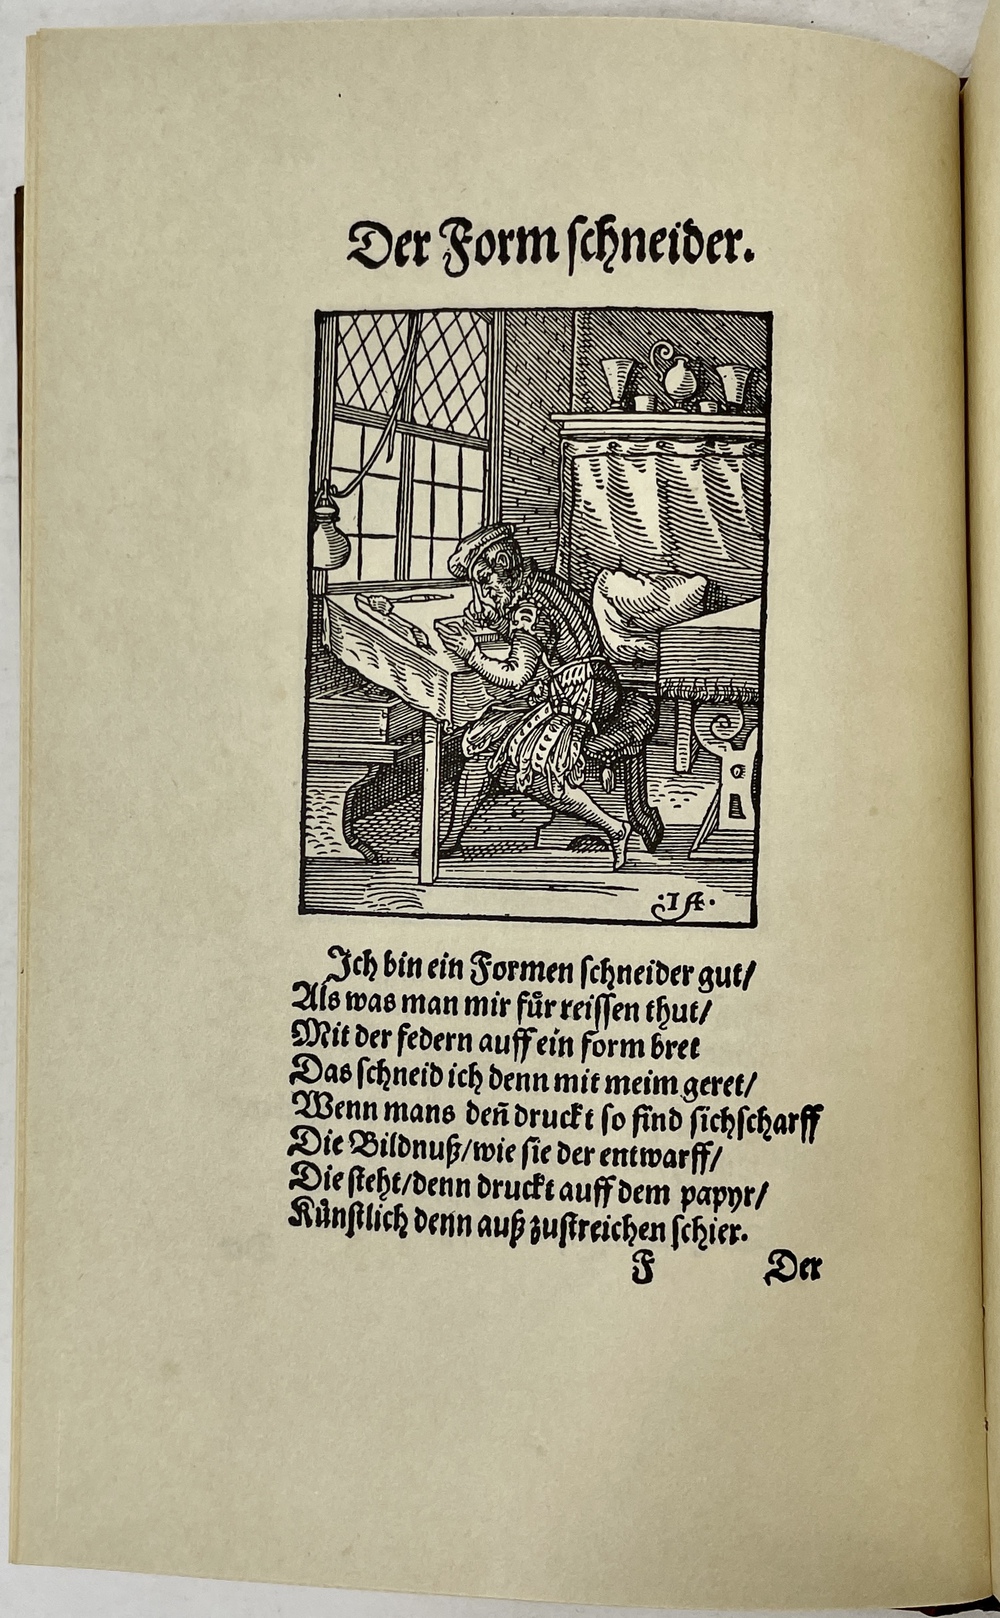 Der Formschneider.
·IA·
Ich bin ein Formen schneider gut/
Als was man mir fuͤr reissen thut/
Mit der federn auff ein form bret
Das schneid ich denn mit meim geret/
Wenn mans deñ druckt so find sichscharff
Die Bildnuß/wie sie der entwarff/
Die steht/denn druckt auff dem papyr/
Kuͤnstlich denn auß zustreichen schier.
F Der